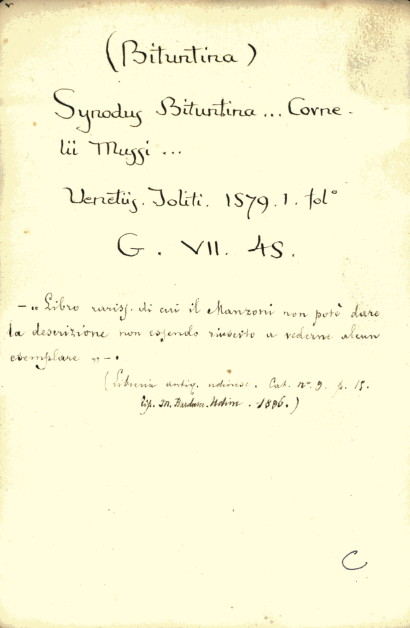 (Bituntina)
Synodus Bituntina ... Corne-
lii Mussi ...
Venetiis. Joliti. 1579. 1. fol°
G. VII. 45.
— „ Libro rariss. di cui il Manzoni non potè dare
la descrizione non essendo riuscito a vederne alcun
esemplare „ — .
(Libreria antiq. udinese. Cat. n° 9. p. 15.
Tip. M. Bardusco. Udine. 1886.)
C